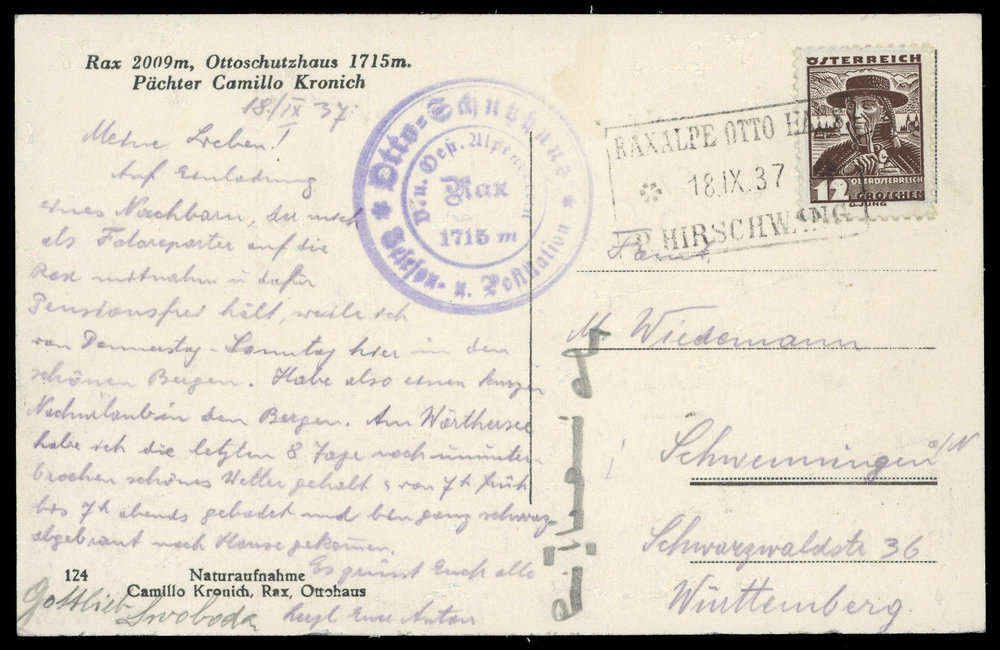 Rax 2009m, Ottoschutzhaus 1715m.
Pächter Camillo Kronich
18./IX 37.
Meine Lieben!
Auf Einladung
eines Nachbarn, der mich
als Fotoreporter auf die
Rax mitnahm u. dafür
Pensionsfrei hält, weile ich
von Donnerstag-Sonntag hier in den
schönen Bergen. Habe also einen kurzen
Nachurlaub in den Bergen. Am Wörthersee
habe ich die letzten 8 Tage noch ununter-
brochen schönes Wetter gehabt u. von 7h früh
bis 7h abends gebadet und bin ganz schwarz
abgebrant nach Hause gekommen.
Es grüsst Euch alle
herzl. Euer Anton
Gottlieb
Swoboda
124
Naturaufnahme
Camillo Kronich, Rax, Ottohaus
Otto-Schutzhaus
D. u. Oest. Alpenverein
Rax
1715 m
Telefon- u. Poststation
RAXALPE OTTO HAUS
18.IX.37
P. HIRSCHWANG
ÖSTERREICH
OBERÖSTERREICH
12 GROSCHEN
G. JUNG
Fam.
M. Wiedemann
Schwenningen a/N
Schwarzwaldstr 36
Württemberg.